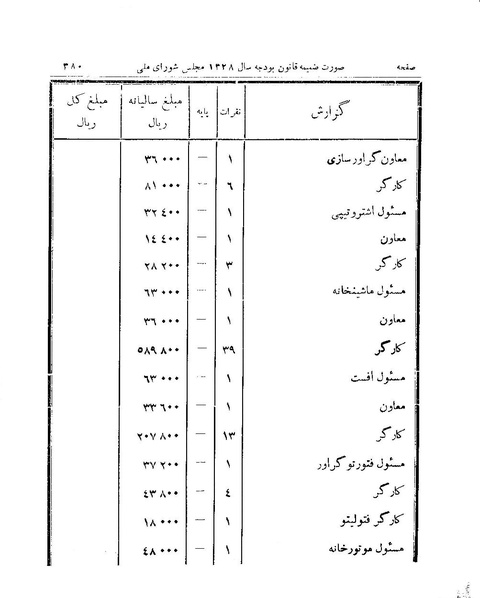 صفحه صورت ضمیمه قانون بودجه سال ۱۳۲۸ مجلس شورای ملی ۳۸۰
گزارش نفرات پایه مبلغ سالیانه ریال مبلغ کل ریال
معاون گراورسازی ۱ — ۳۶ ۰۰۰
کارگر ۶ — ۸۱ ۰۰۰
مسئول اشتروتیپی ۱ — ۳۲ ۴۰۰
معاون ۱ — ۱۴ ۴۰۰
کارگر ۳ — ۲۸ ۲۰۰
مسئول ماشینخانه ۱ — ۶۳ ۰۰۰
معاون ۱ — ۳۶ ۰۰۰
کارگر ۳۹ — ۵۸۹ ۸۰۰
مسئول افست ۱ — ۶۳ ۰۰۰
معاون ۱ — ۳۳ ۶۰۰
کارگر ۱۳ — ۲۰۷ ۸۰۰
مسئول فتورتوگراور ۱ — ۳۷ ۲۰۰
کارگر ۴ — ۴۳ ۸۰۰
کارگر فتولیتو ۱ — ۱۸ ۰۰۰
مسئول موتورخانه ۱ — ۴۸ ۰۰۰